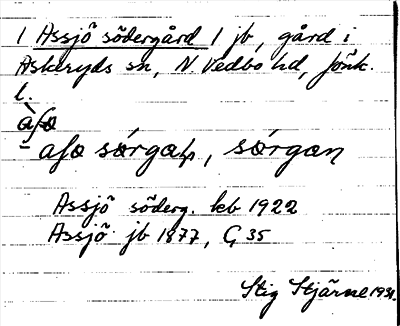 1 Assjö södergård 1 jb, gård i
Askeryds sn, N Vedbo hd, Jönk.
l.
àʃə
aʃə sǿrgaɲ, sǿrgan
Assjö söderg. kb 1922
Assjö jb 1877, G 35
Stig Stjärne 1931.